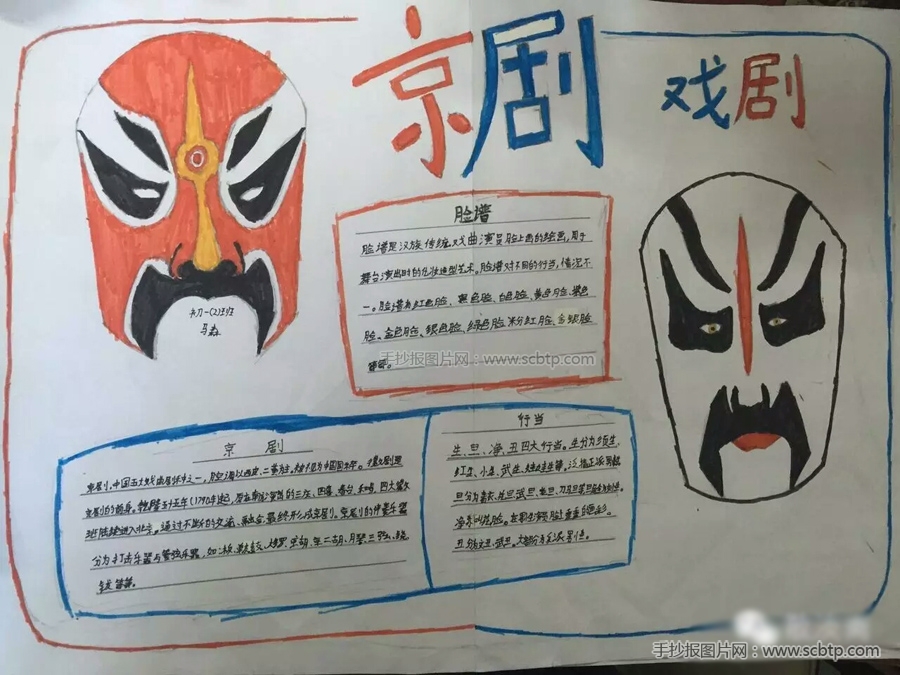 京剧
戏剧
初一(2)班
马淼
脸谱
脸谱是汉族传统戏曲演员脸上画的绘画,用于
舞台演出时的化妆造型艺术。脸谱对不同的行当,情况不
一。脸谱有红色脸、黑色脸、白色脸、黄色脸、紫色
脸、金色脸、银色脸、绿色脸、粉红脸、金银脸
等等。
手抄报图片网:www.scbtp.com
京 剧
京剧,中国五大戏曲剧种之一,腔调以西皮、二黄为主,被视为中国国粹。徽剧是
京剧的前身。乾隆五十五年(1790年)起,原在南方演出的三庆、四喜、春台、和春,四大徽
班陆续进入北京。通过不断的交流、融合,最终形成京剧。京剧的伴奏乐器
分为打击乐器与管弦乐器,如板、单皮鼓、大锣、京胡、京二胡、月琴、三弦、铙
钹等等。
行当
生、旦、净、丑四大行当。生分为须生、
红生、小生、武生、娃娃生等。
旦分青衣、花旦、武旦、老旦、刀马旦
净
丑分文丑、武丑。
手抄报图片网:www.scbtp.com